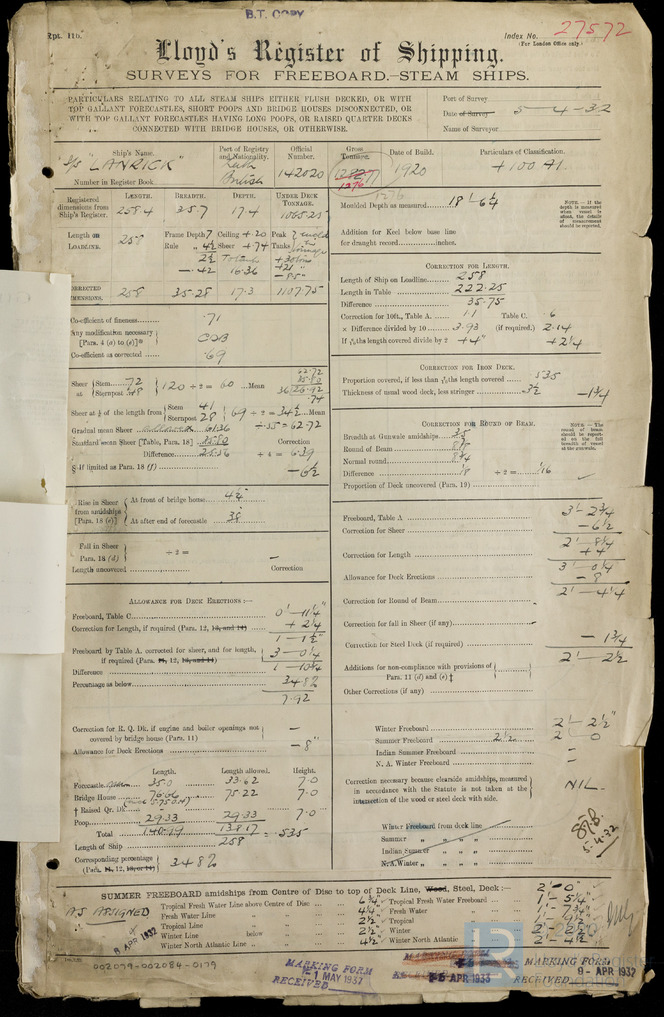 B.T. COPY
Rpt. 11b.
Index No. 27572
(For London Office only.)
Lloyd's Register of Shipping.
SURVEYS FOR FREEBOARD.—STEAM SHIPS.
PARTICULARS RELATING TO ALL STEAM SHIPS EITHER FLUSH DECKED, OR WITH
TOP GALLANT FORECASTLES, SHORT POOPS AND BRIDGE HOUSES DISCONNECTED, OR
WITH TOP GALLANT FORECASTLES HAVING LONG POOPS, OR RAISED QUARTER DECKS
CONNECTED WITH BRIDGE HOUSES, OR OTHERWISE.
Port of Survey
Date of Survey 5-4-32
Name of Surveyor
Ship's Name. Port of Registry and Nationality. Official Number. Gross Tonnage. Date of Build. Particulars of Classification.
S/S "LANRICK" Leith British 142020 1276 1920 +100 A1.
Number in Register Book
Registered dimensions from Ship's Register. LENGTH. 258.4 BREADTH. 35.7 DEPTH. 17.4 UNDER DECK TONNAGE. 1065.25
Length on LOADLINE. 258 Frame Depth 7 Ceiling +.20 Peak
Rule " 4½ Sheer +.74 Tanks
2½
-.42 16.36
CORRECTED DIMENSIONS. 258 35.28 17.3 1107.75
Moulded Depth as measured 18'-6½
NOTE.—If the depth is measured when vessel is afloat, the details of measurement should be reported.
Addition for Keel below base line
for draught record inches.
Co-efficient of fineness .71
Any modification necessary [Para. 4 (a) to (e)]* CDB
Co-efficient as corrected .69
CORRECTION FOR LENGTH.
Length of Ship on Loadline 258
Length in Table 222.25
Difference 35.75
Correction for 10ft., Table A. 1.1 Table C. .6
× Difference divided by 10 3.93 (if required.) 2.14
If 6/10ths length covered divide by 2 +4" +2¼
Sheer at Stem 72 Sternpost 48 } 120 ÷ 2 = 60 Mean
Sheer at ⅛ of the length from Stem 41 Sternpost 28 } 69 ÷ 2 = 34½ Mean
Gradual mean Sheer 61.36 ÷ .55 = 62.72
Standard mean Sheer [Table, Para. 18] 35.80 Correction
Difference 25.56 ÷ 4 = 6.39
§ If limited as Para. 18 (f) -6½
CORRECTION FOR IRON DECK.
Proportion covered, if less than 7/10ths length covered .535
Thickness of usual wood deck, less stringer 3½ -1¾
CORRECTION FOR ROUND OF BEAM.
Breadth at Gunwale amidships 35
Round of Beam 8⅞
Normal round 8¾
Difference ⅛ ÷ 2 = 1/16
Proportion of Deck uncovered (Para. 19)
NOTE.—The round of beam should be reported on the full breadth of vessel at the gunwale.
Rise in Sheer from amidships [Para. 18 (e)] At front of bridge house 4½
At after end of forecastle 38
Fall in Sheer Para. 18 (d) ÷ 2 = —
Length uncovered Correction
ALLOWANCE FOR DECK ERECTIONS :—
Freeboard, Table C 0'-11¼"
Correction for Length, if required (Para. 12, 13, and 14) +2¼
1-1½
Freeboard by Table A. corrected for sheer, and for length, if required (Para. 11, 12, 13, and 14) 3-0¼
Difference 1-10¾
Percentage as below 34.8%
7.92
Correction for R. Q. Dk. if engine and boiler openings not covered by bridge house (Para. 11) —
Allowance for Deck Erections -8"
Length. Length allowed. Height.
Forecastle 35.0 33.62 7.0
Bridge House 76.66 75.22 7.0
† Raised Qr. Dk.
Poop 29.33 29.33 7.0
Total 140.99 138.17 = .535
Length of Ship 258
Corresponding percentage (Para. 11, 12, 13, or 14) } 34.8%
Freeboard, Table A 3'-2¾
Correction for Sheer -6½
2'-8¼
Correction for Length +4
3'-0¼
Allowance for Deck Erections -8
2'-4¼
Correction for Round of Beam
Correction for fall in Sheer (if any)
Correction for Steel Deck (if required) -1¾
2'-2½
Additions for non-compliance with provisions of Para. 11 (d) and (e)‡
Other Corrections (if any)
Winter Freeboard 2'-2½"
Summer Freeboard 2½ 2 0
Indian Summer Freeboard —
N. A. Winter Freeboard —
Correction necessary because clearside amidships, measured
in accordance with the Statute is not taken at the
intersection of the wood or steel deck with side. NIL.
Winter Freeboard from deck line
Summer " " "
Indian Summer " " "
N.A. Winter " " "
5.4.32
SUMMER FREEBOARD amidships from Centre of Disc to top of Deck Line, Wood, Steel, Deck :— 2'-0"
AS ASSIGNED
8 APR 1932
Tropical Fresh Water Line above Centre of Disc 6¾ Tropical Fresh Water Freeboard 1'-5¼"
Fresh Water Line " " 4¼ Fresh Water " 1'-7¾"
Tropical Line " " 2½ Tropical " 1'-9½"
Winter Line below " 2½ Winter " 2'-2½
Winter North Atlantic Line " " 4½ Winter North Atlantic " 2'-4½
002079-002084-0179
MARKING FORM
1 MAY 1937
RECEIVED
APR 1933
MARKING FORM
RECEIVED 9-APR 1932